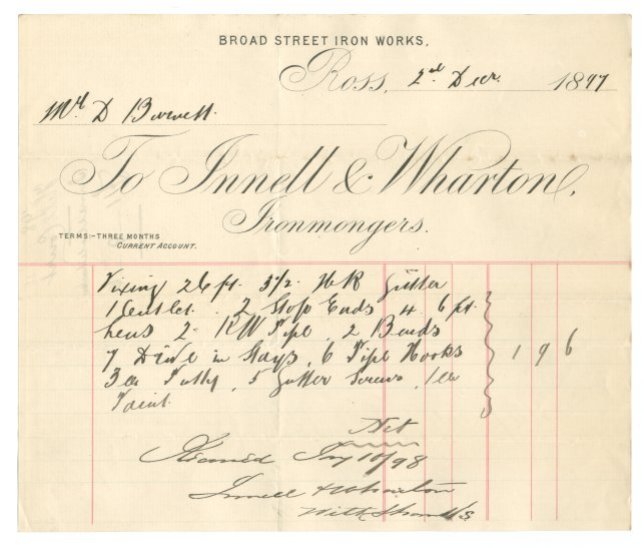 BROAD STREET IRON WORKS.
Ross, 2nd Decr. 1897
Mr D
To Innell & Wharton,
Ironmongers.
TERMS:-THREE MONTHS
CURRENT ACCOUNT.
Fixing 26 ft. 3 1/2 H R Gutter
1 2 Stop Ends 4 6 ft
2 R W Pipe 2 Bends
7 Drive in Stays, 6 Pipe Hooks 1 9 6
3 lb Putty, 5 Gutter Screws, 1 lb
Paint.
Net
Received Jany 10/98
Innell & Wharton
With thanks